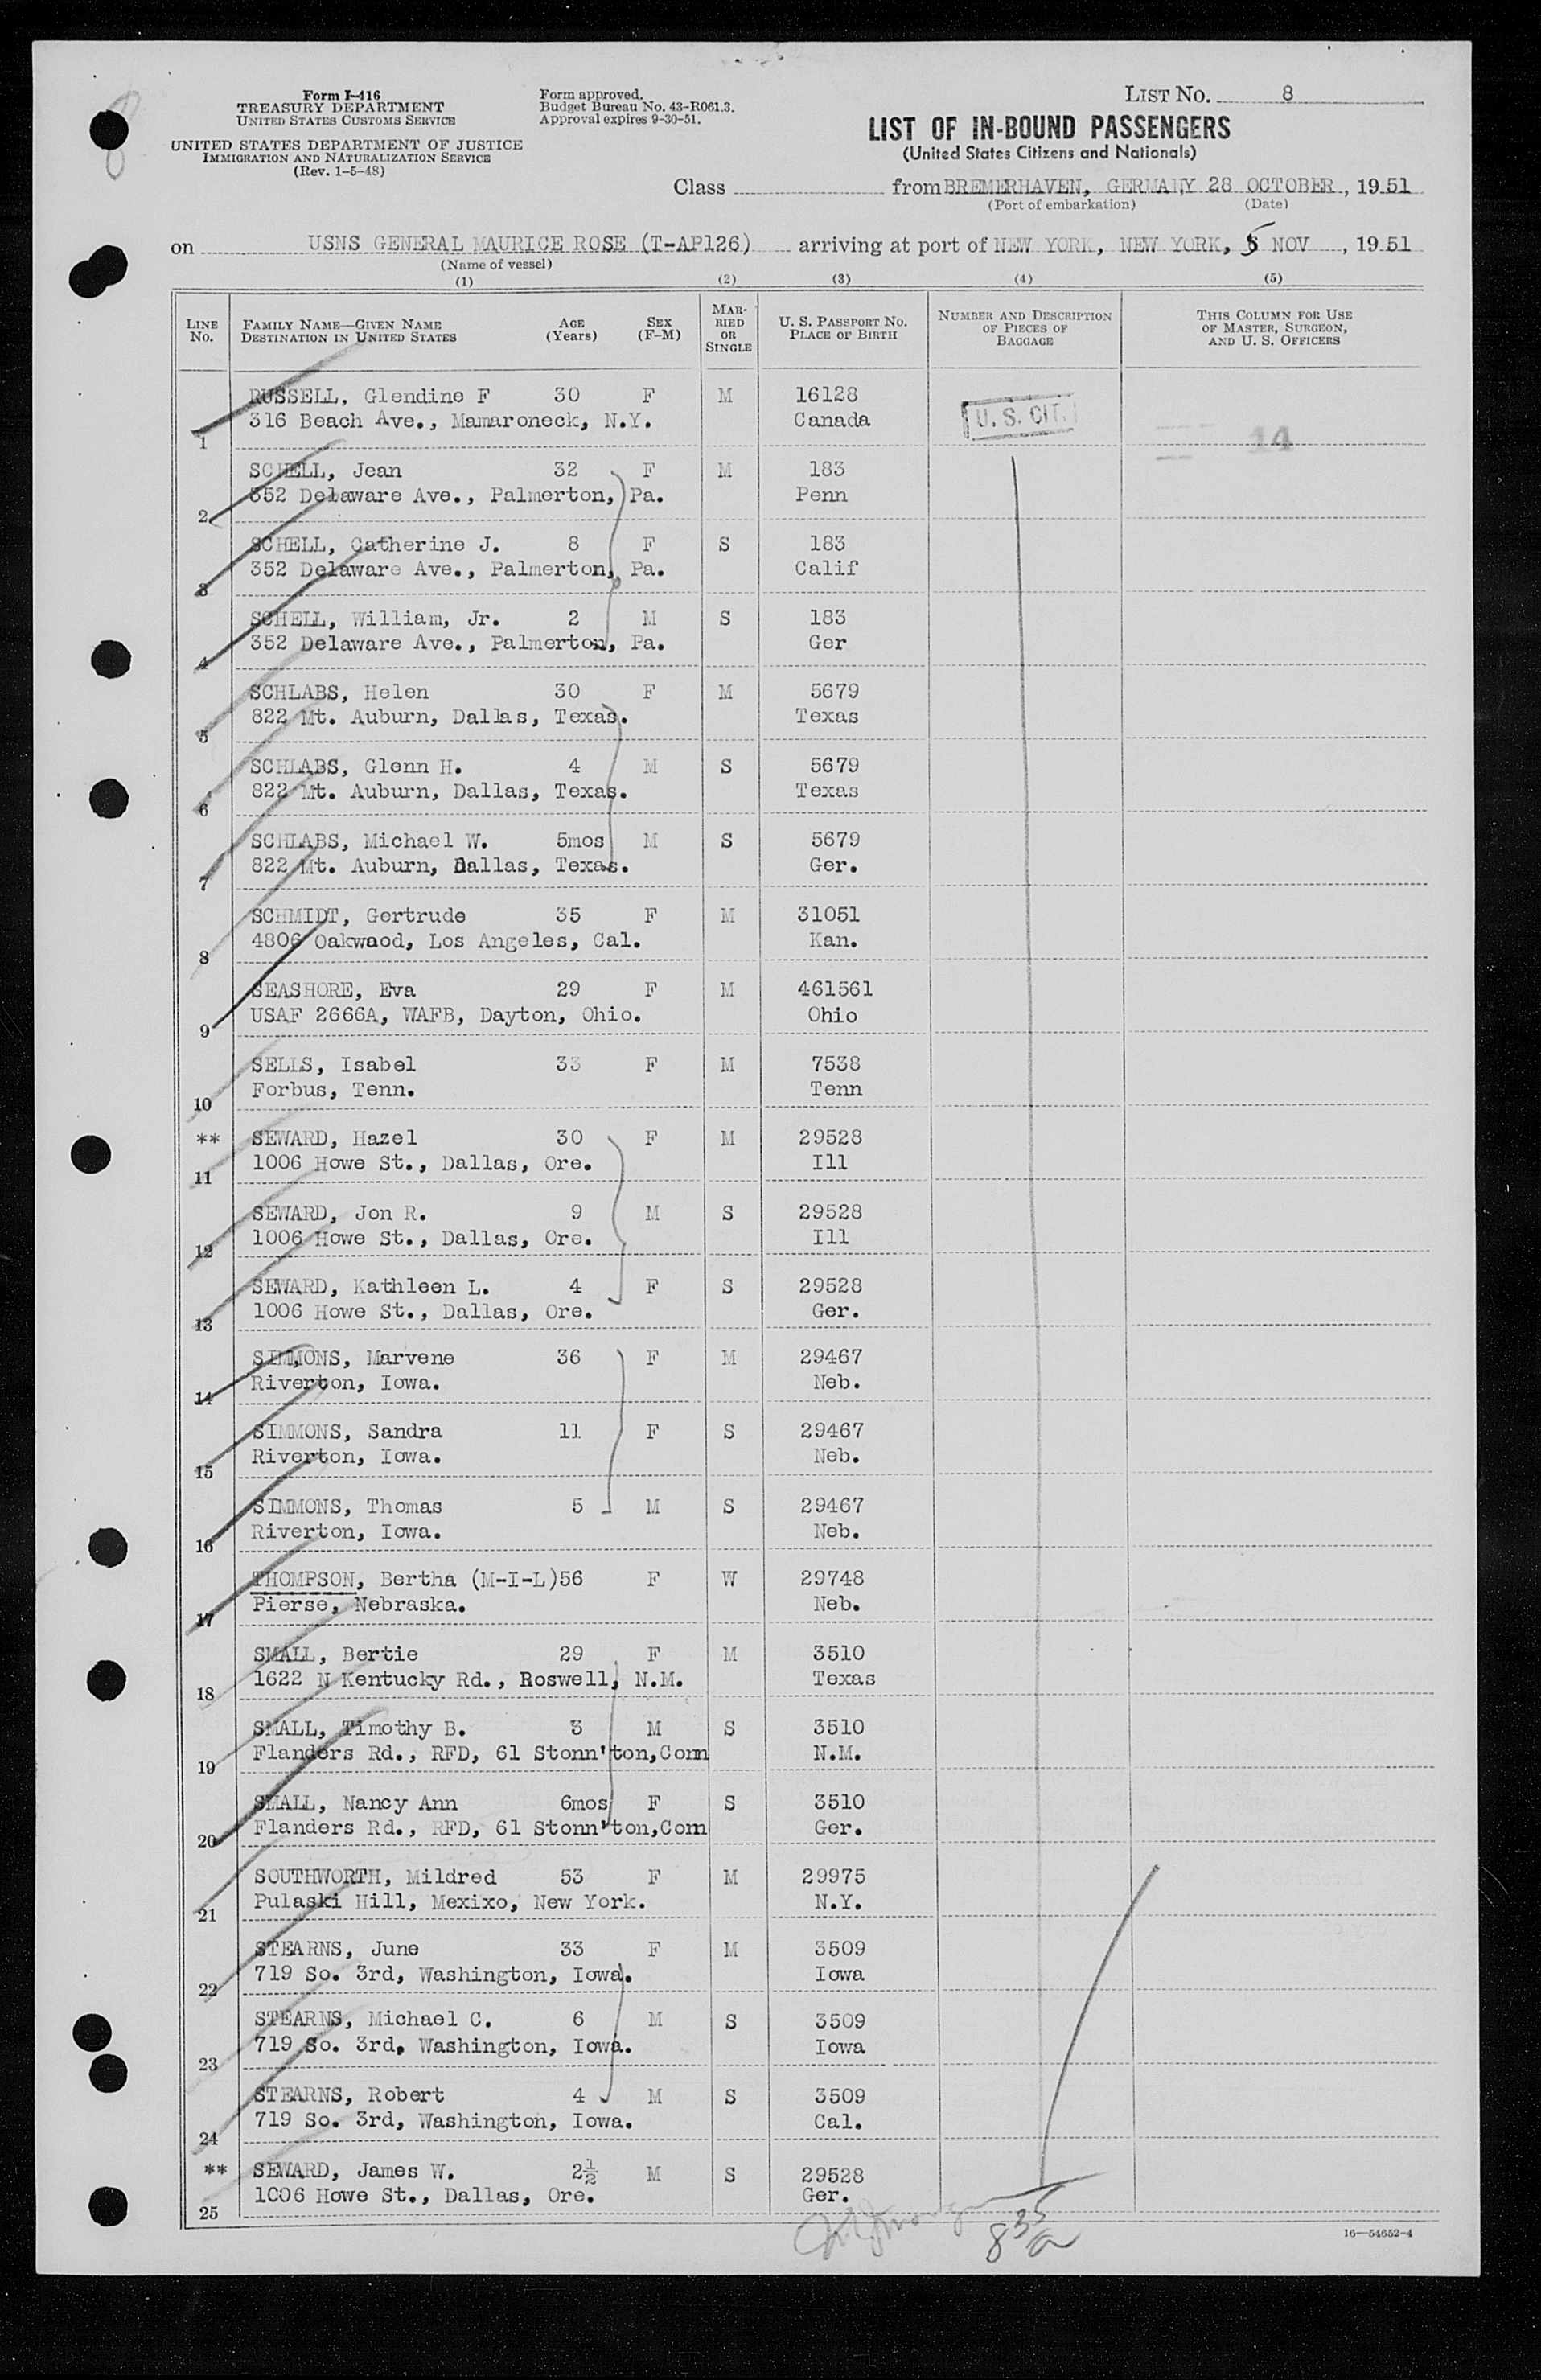 Form I-416
TREASURY DEPARTMENT
UNITED STATES CUSTOMS SERVICE
UNITED STATES DEPARTMENT OF JUSTICE
IMMIGRATION AND NATURALIZATION SERVICE
(Rev. 1-5-48)
Form approved.
Budget Bureau No. 43-R061.3.
Approval expires 9-30-51.
LIST No. 8
LIST OF IN-BOUND PASSENGERS
(United States Citizens and Nationals)
Class from BREMERHAVEN, GERMANY 28 OCTOBER, 1951
(Port of embarkation) (Date)
on USNS GENERAL MAURICE ROSE (T-AP126) arriving at port of NEW YORK, NEW YORK, 5 NOV, 1951
(Name of vessel)
(1) (2) (3) (4) (5)
LINE No. FAMILY NAME—GIVEN NAME DESTINATION IN UNITED STATES AGE (Years) SEX (F-M) MARRIED OR SINGLE U. S. PASSPORT No. PLACE OF BIRTH NUMBER AND DESCRIPTION OF PIECES OF BAGGAGE THIS COLUMN FOR USE OF MASTER, SURGEON, AND U. S. OFFICERS
RUSSELL, Glendine F 30 F M 16128
1 316 Beach Ave., Mamaroneck, N.Y. Canada U. S. CIT. 14
SCHELL, Jean 32 F M 183
2 352 Delaware Ave., Palmerton, Pa. Penn
SCHELL, Catherine J. 8 F S 183
3 352 Delaware Ave., Palmerton, Pa. Calif
SCHELL, William, Jr. 2 M S 183
4 352 Delaware Ave., Palmerton, Pa. Ger
SCHLABS, Helen 30 F M 5679
5 822 Mt. Auburn, Dallas, Texas. Texas
SCHLABS, Glenn H. 4 M S 5679
6 822 Mt. Auburn, Dallas, Texas. Texas
SCHLABS, Michael W. 5mos M S 5679
7 822 Mt. Auburn, Dallas, Texas. Ger.
SCHMIDT, Gertrude 35 F M 31051
8 4806 Oakwood, Los Angeles, Cal. Kan.
SEASHORE, Eva 29 F M 461561
9 USAF 2666A, WAFB, Dayton, Ohio. Ohio
SELLS, Isabel 33 F M 7538
10 Forbus, Tenn. Tenn
** SEWARD, Hazel 30 F M 29528
11 1006 Howe St., Dallas, Ore. Ill
SEWARD, Jon R. 9 M S 29528
12 1006 Howe St., Dallas, Ore. Ill
SEWARD, Kathleen L. 4 F S 29528
13 1006 Howe St., Dallas, Ore. Ger.
SIMMONS, Marvene 36 F M 29467
14 Riverton, Iowa. Neb.
SIMMONS, Sandra 11 F S 29467
15 Riverton, Iowa. Neb.
SIMMONS, Thomas 5 M S 29467
16 Riverton, Iowa. Neb.
THOMPSON, Bertha (M-I-L) 56 F W 29748
17 Pierse, Nebraska. Neb.
SMALL, Bertie 29 F M 3510
18 1622 N Kentucky Rd., Roswell, N.M. Texas
SMALL, Timothy B. 3 M S 3510
19 Flanders Rd., RFD, 61 Stonn'ton,Conn N.M.
SMALL, Nancy Ann 6mos F S 3510
20 Flanders Rd., RFD, 61 Stonn'ton,Conn Ger.
SOUTHWORTH, Mildred 53 F M 29975
21 Pulaski Hill, Mexixo, New York. N.Y.
STEARNS, June 33 F M 3509
22 719 So. 3rd, Washington, Iowa. Iowa
STEARNS, Michael C. 6 M S 3509
23 719 So. 3rd, Washington, Iowa. Iowa
STEARNS, Robert 4 M S 3509
24 719 So. 3rd, Washington, Iowa. Cal.
** SEWARD, James W. 2½ M S 29528
25 1006 Howe St., Dallas, Ore. Ger.
16—54652-4